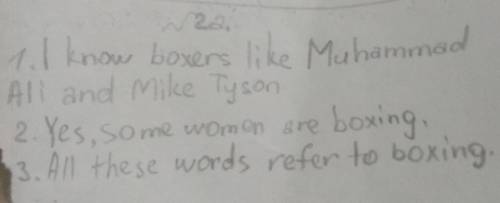 №2a.
1. I know boxers like Muhammad
Ali and Mike Tyson
2. Yes, some women are boxing.
3. All these words refer to boxing.